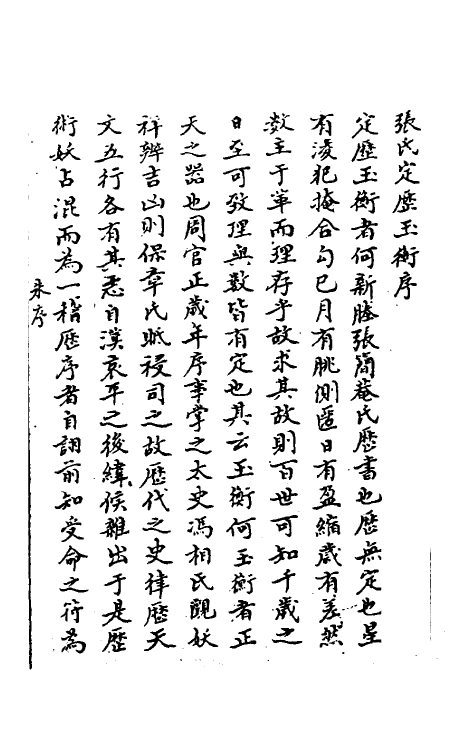 張氏定歷玉衡序
定歷玉衡者何新塍張簡菴氏歷書也歷無定也星
有淩犯掩合勾已月有朓側匿日有盈縮歲有差然
数主于革而理存乎故求其故則百世可知千歲之
日至可致理與數皆有定也其云玉衡何玉衡者正
天之器也周官正歲年序事掌之太史馮相氏觀妖
祥辨吉凶則保章氏眡祲司之故歷代之史律歷天
文五行各有其志自漢哀平之後緯候雜出于是歷
術妖占混而為一稽歷序者自詡前知受命之符為
朱序